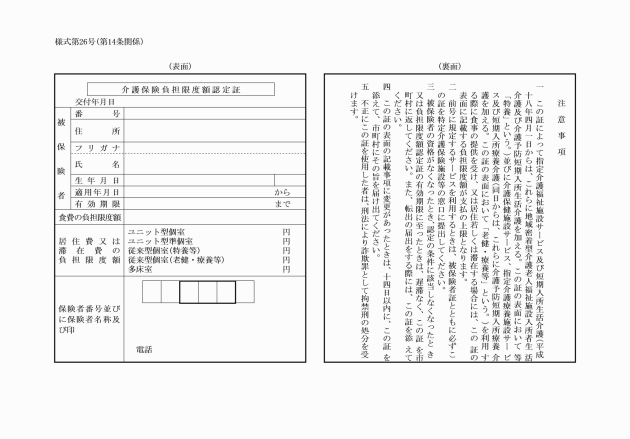 様式第26号(第14条関係)
(表面)
介護保険負担限度額認定証
交付年月日
被保険者
番号
住所
フリガナ
氏名
生年月日
適用年月日 から
有効期限 まで
食費の負担限度額
居住費又は
滞在費の
負担限度額
ユニット型個室 円
ユニット型準個室 円
従来型個室(特養等) 円
従来型個室(老健・療養等) 円
多床室 円
保険者番号並び
に保険者名称及
び印
電話
(裏面)
注意事項
一 この証によって指定介護福祉施設サービス及び短期入所生活介護(平成
十八年四月一日からは、これらに地域密着型介護老人福祉施設入所者生活
介護及び介護予防短期入所生活介護を加える。この証の表面において等
「特養」という。)並びに介護保健施設サービス、指定介護療養施設サービ
ス及び短期入所療養介護(同日からは、これらに介護予防短期入所療養介
護を加える。この証の表面において「老健・療養等」という。)を利用す
る際に食事の提供を受け、又は居住若しくは滞在する場合には、この証の
表面に記載する負担限度額が支払の上限となります。
二 前号に規定するサービスを利用するときは、被保険者証とともに必ずこ
の証を特定介護保険施設等の窓口に提出してください。
三 被保険者の資格がなくなったとき、認定の条件に該当しなくなったとき
又は負担限度額認定証の有効期限に至ったときは、遅滞なく、この証を市
町村に返してください。また、転出の届出をする際には、この証を添えて
ください。
四 この証の表面の記載事項に変更があったときは、十四日以内に、この証を
添えて、市町村にその旨を届け出てください。
五 不正にこの証を使用した者は、刑法により詐欺罪として拘禁刑の処分を受
けます。